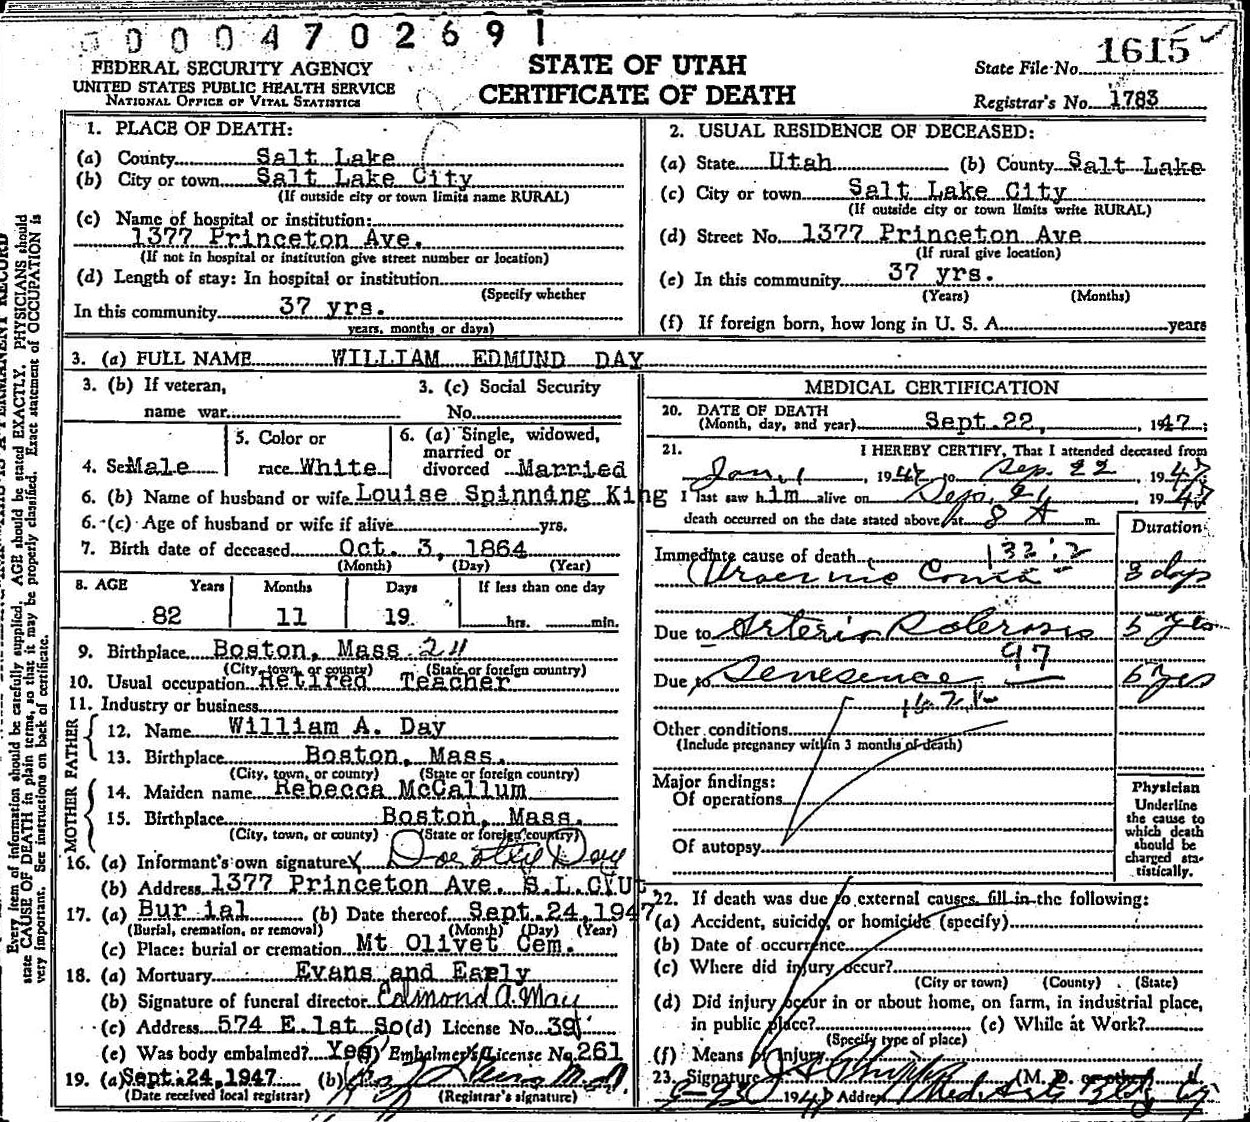 0004702691
FEDERAL SECURITY AGENCY
UNITED STATES PUBLIC HEALTH SERVICE
NATIONAL OFFICE OF VITAL STATISTICS
STATE OF UTAH
CERTIFICATE OF DEATH
State File No. 1615
Registrar's No. 1783
1. PLACE OF DEATH:
(a) County Salt Lake
(b) City or town Salt Lake City
(If outside city or town limits name RURAL)
(c) Name of hospital or institution:
1377 Princeton Ave.
(If not in hospital or institution give street number or location)
(d) Length of stay: In hospital or institution
(Specify whether
In this community 37 yrs.
years, months or days)
2. USUAL RESIDENCE OF DECEASED:
(a) State Utah (b) County Salt Lake
(c) City or town Salt Lake City
(If outside city or town limits write RURAL)
(d) Street No. 1377 Princeton Ave
(If rural give location)
(e) In this community 37 yrs.
(Years) (Months)
(f) If foreign born, how long in U. S. A. years
3. (a) FULL NAME WILLIAM EDMUND DAY
3. (b) If veteran,
name war
3. (c) Social Security
No.
4. Sex Male
5. Color or
race White
6. (a) Single, widowed,
married or
divorced Married
6. (b) Name of husband or wife Louise Spinning King
6. (c) Age of husband or wife if alive yrs.
7. Birth date of deceased Oct. 3, 1864
(Month) (Day) (Year)
8. AGE Years Months Days If less than one day
82 11 19 hrs. min.
9. Birthplace Boston, Mass 24
(City, town, or county) (State or foreign country)
10. Usual occupation Retired Teacher
11. Industry or business
FATHER
12. Name William A. Day
13. Birthplace Boston, Mass.
(City, town, or county) (State or foreign country)
MOTHER
14. Maiden name Rebecca McCallum
15. Birthplace Boston, Mass.
(City, town, or county) (State or foreign country)
16. (a) Informant's own signature x Dorothy Day
(b) Address 1377 Princeton Ave. S.L.CyUt.
17. (a) Bur ial (b) Date thereof Sept.24,1947
(Burial, cremation, or removal) (Month) (Day) (Year)
(c) Place: burial or cremation Mt Olivet Cem.
18. (a) Mortuary Evans and Early
(b) Signature of funeral director Edmond A. May
(c) Address 574 E.1st So (d) License No. 391
(e) Was body embalmed? Yes Embalmer's License No. 261
19. (a) Sept.24,1947 (b) M.D.
(Date received local registrar) (Registrar's signature)
MEDICAL CERTIFICATION
20. DATE OF DEATH
(Month, day, and year) Sept.22, 1947;
21. I HEREBY CERTIFY, That I attended deceased from
Jan, 1, 1947 to Sep. 22, 1947
I last saw h im alive on Sep. 21, 1947
death occurred on the date stated above at 8 A m.
Duration
Immediate cause of death 132.2
Uraemic Coma 3 days
Due to Arterio Sclerosis 5 yrs
97
Due to Senesence
162.1
Other conditions
(Include pregnancy within 3 months of death)
Major findings:
Of operations
Of autopsy
Physician
Underline
the cause to
which death
should be
charged sta-
tistically.
22. If death was due to external causes, fill in the following:
(a) Accident, suicide, or homicide (specify)
(b) Date of occurrence
(c) Where did injury occur?
(City or town) (County) (State)
(d) Did injury occur in or about home, on farm, in industrial place,
in public place? (e) While at Work?
(Specify type of place)
(f) Means of Injury
23. Signature (M. D. or other)
1947 Address Med. Arts Bldg
Every item of information should be carefully supplied. AGE should be stated EXACTLY. PHYSICIANS should
state CAUSE OF DEATH in plain terms, so that it may be properly classified. Exact statement of OCCUPATION is
very important. See instructions on back of certificate.